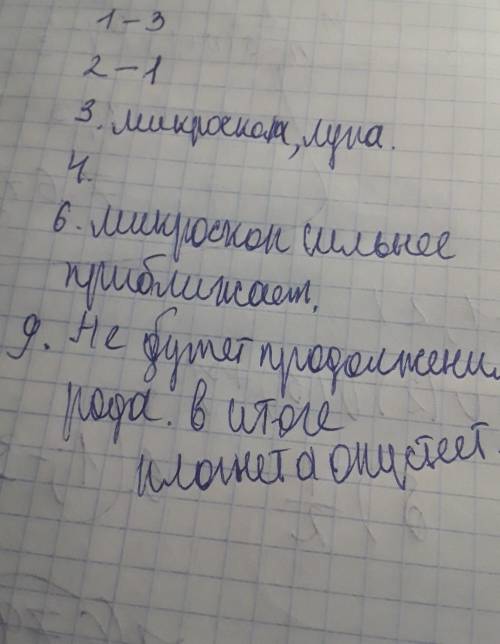 1-3
2-1
3. микроскоп, лупа.
4.
6. микроскоп сильнее
приближает.
9. Не будет продолжения
рода. в итоге
планета опустеет.